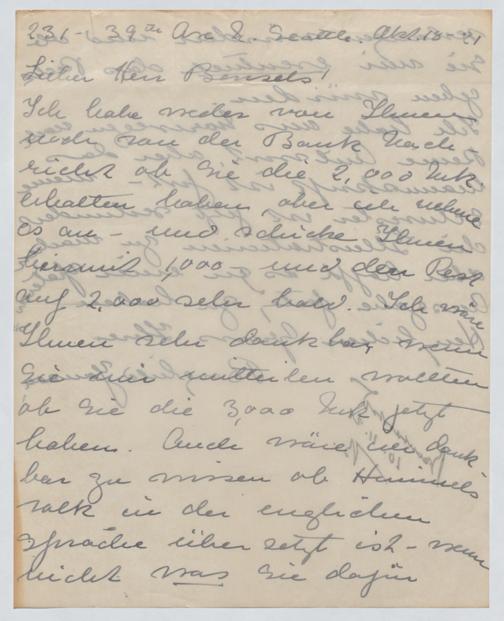 231 - 39th Ave N. Seattle. Okt. 18 - 21
Lieber Herr Bensels!
Ich habe weder von Ihnen
noch von der Bank Nach
richt ob Sie die 2,000 Mk
erhalten haben, aber ich nehme
es an - und schicke Ihnen
hiermit 1,000 - und den Rest
auf 2,000 sehr bald. Ich wäre
Ihnen sehr dankbar, wenn
Sie mir mitteilen wollten
ob Sie die 3,000 Mk jetzt
haben. Auch wäre ich dank
bar zu wissen ob Himmels
volk in der englichen
Sprache über setzt ist - wenn
nicht was Sie dafür